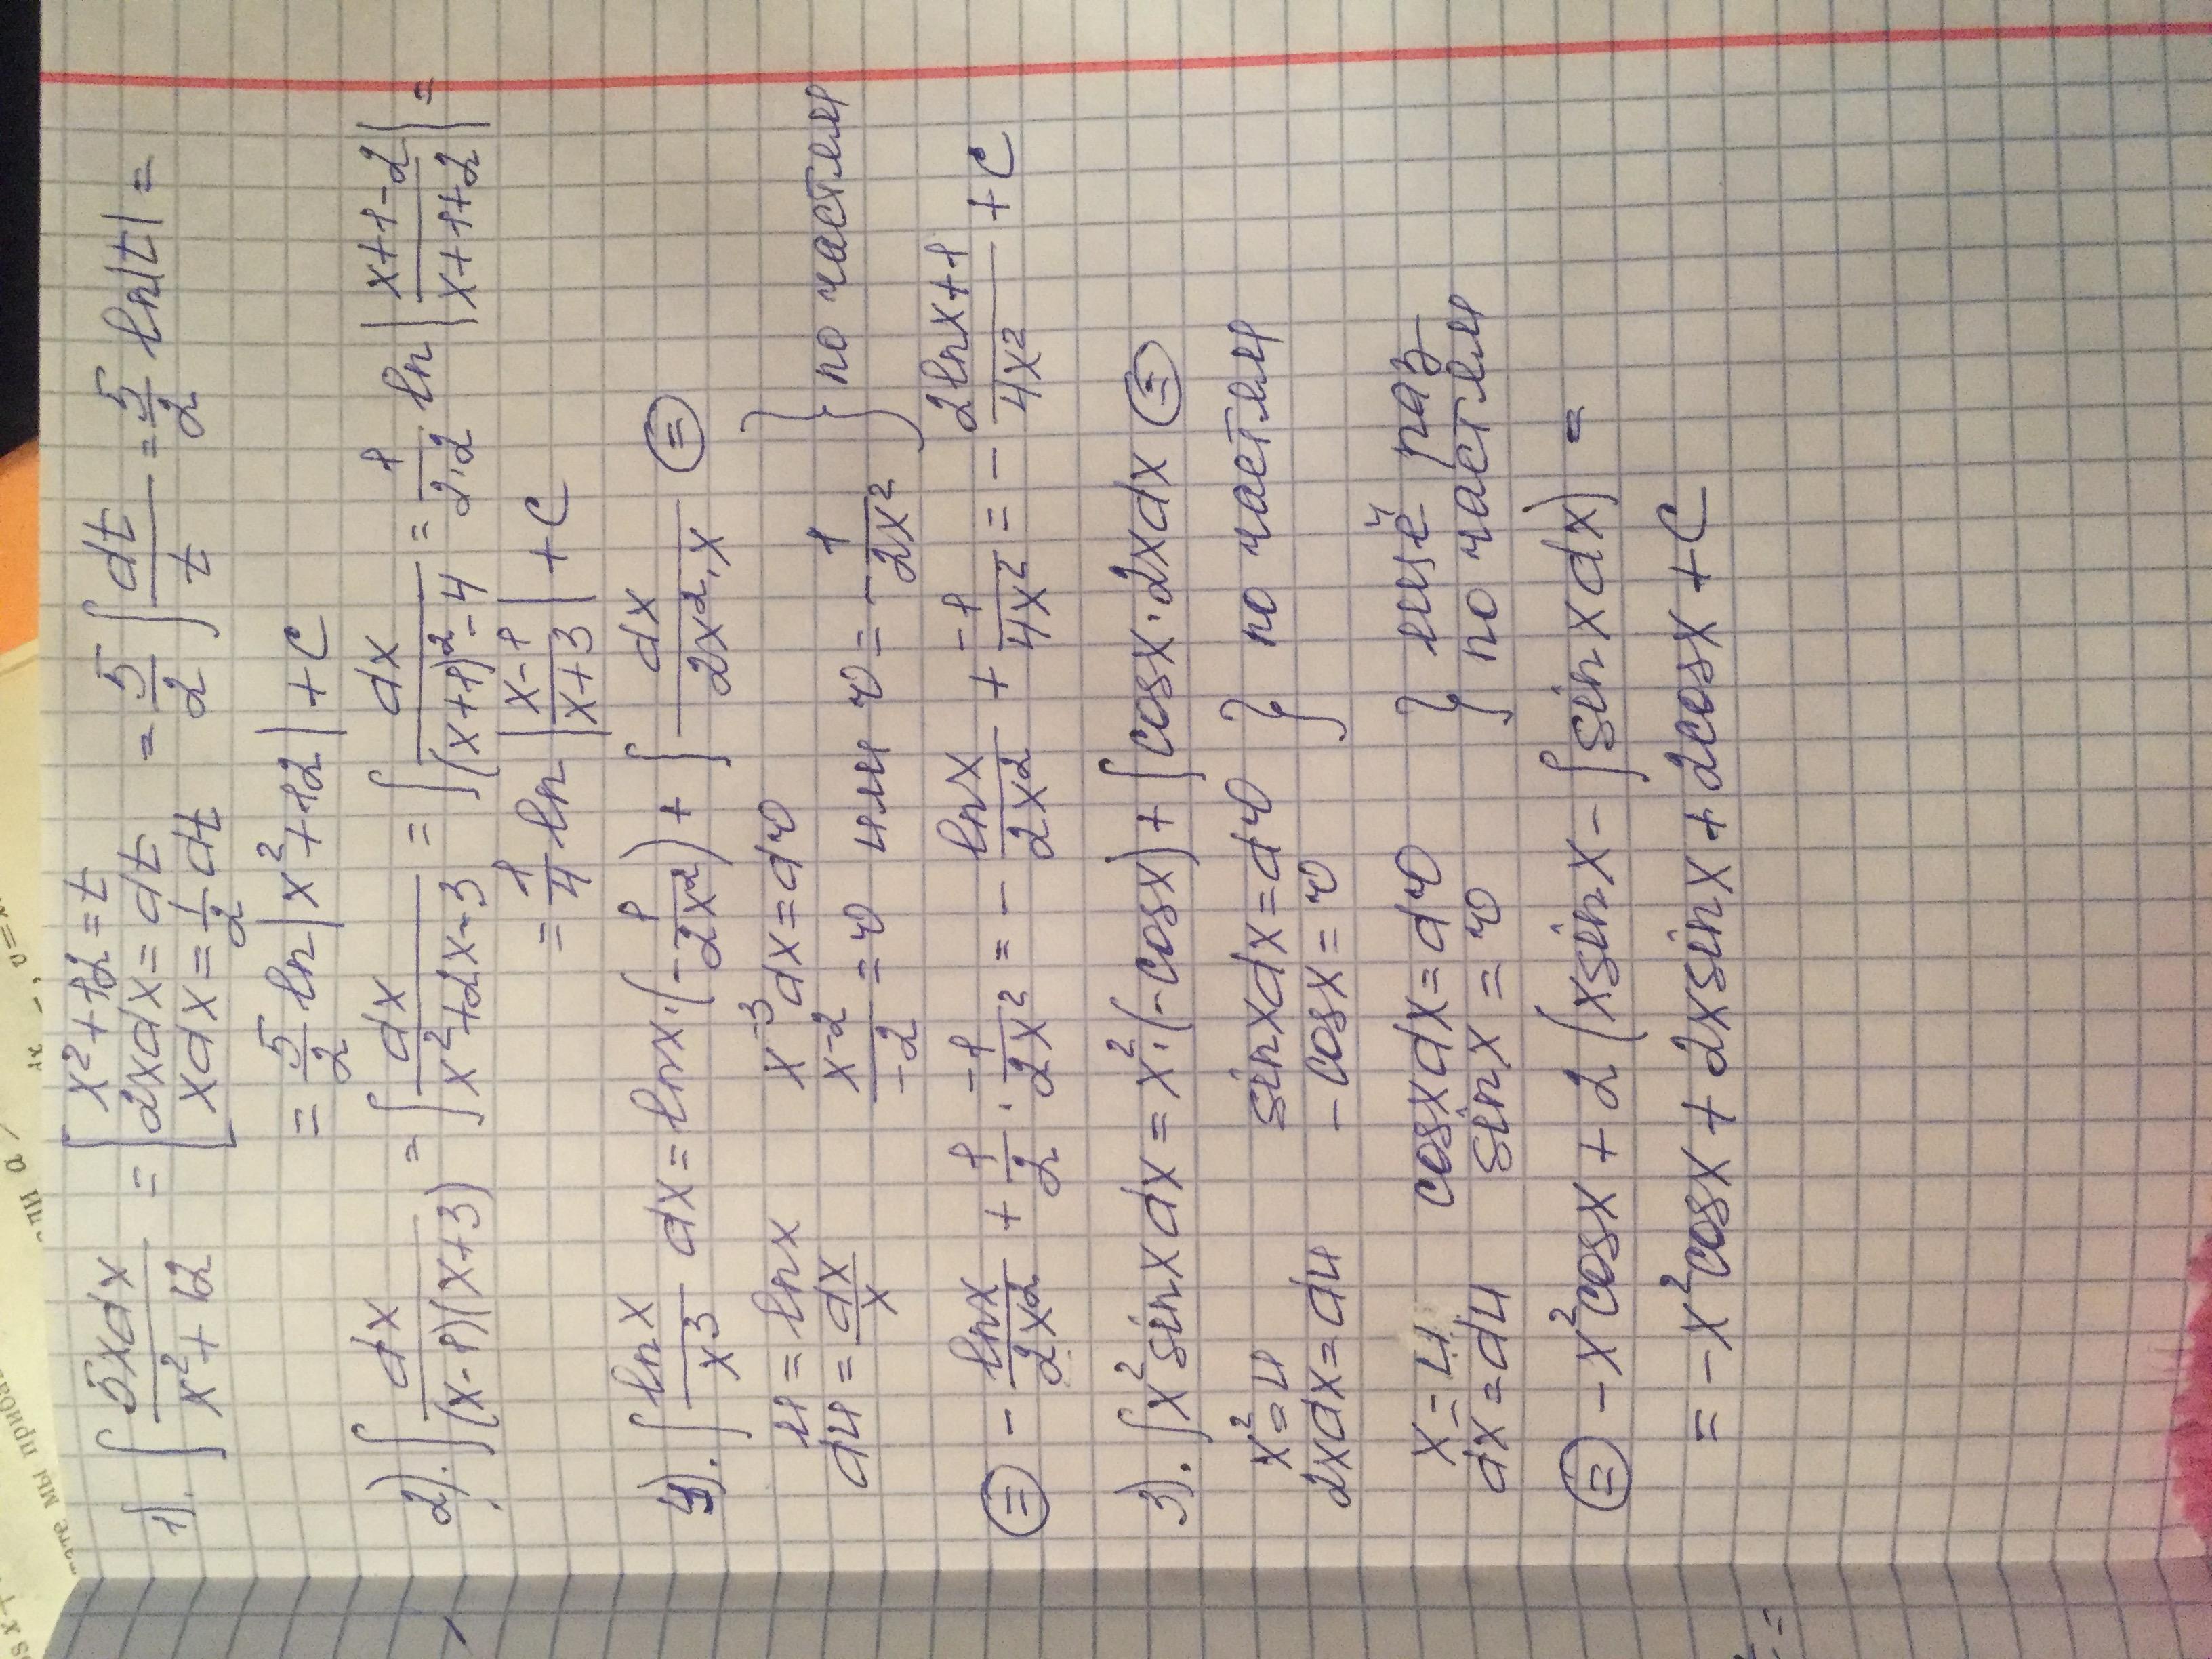 1). ∫ 5xdx/(x²+12) = [x²+12=t
2xdx=dt
xdx=1/2 dt
= 5/2 ∫ dt/t = 5/2 ln|t| =
= 5/2 ln|x²+12|+C
2). ∫ dx/((x-1)(x+3)) = ∫ dx/(x²+2x-3) = ∫ dx/((x+1)²-4) = 1/(2·2) ln|(x+1-2)/(x+1+2)| =
= 1/4 ln|(x-1)/(x+3)|+C
4). ∫ lnx/x³ dx = lnx·(-1/(2x²)) + ∫ dx/(2x²·x) ⊜
u = lnx x⁻³dx = dv } по частям
du = dx/x x⁻²/-2 = v или v = -1/(2x²)
⊜ - lnx/(2x²) + 1/2 · -1/(2x²) = - lnx/(2x²) + -1/(4x²) = - (2lnx+1)/(4x²) + C
3). ∫x²sinxdx = x²·(-cosx) + ∫cosx·2xdx ⊜
x²=u sinxdx=dv } по частям
2xdx=du -cosx=v
x=u cosxdx=dv } ещё раз
dx=du sinx=v по частям
⊜ -x²cosx + 2(xsinx - ∫sinxdx) =
= -x²cosx + 2xsinx + 2cosx + C